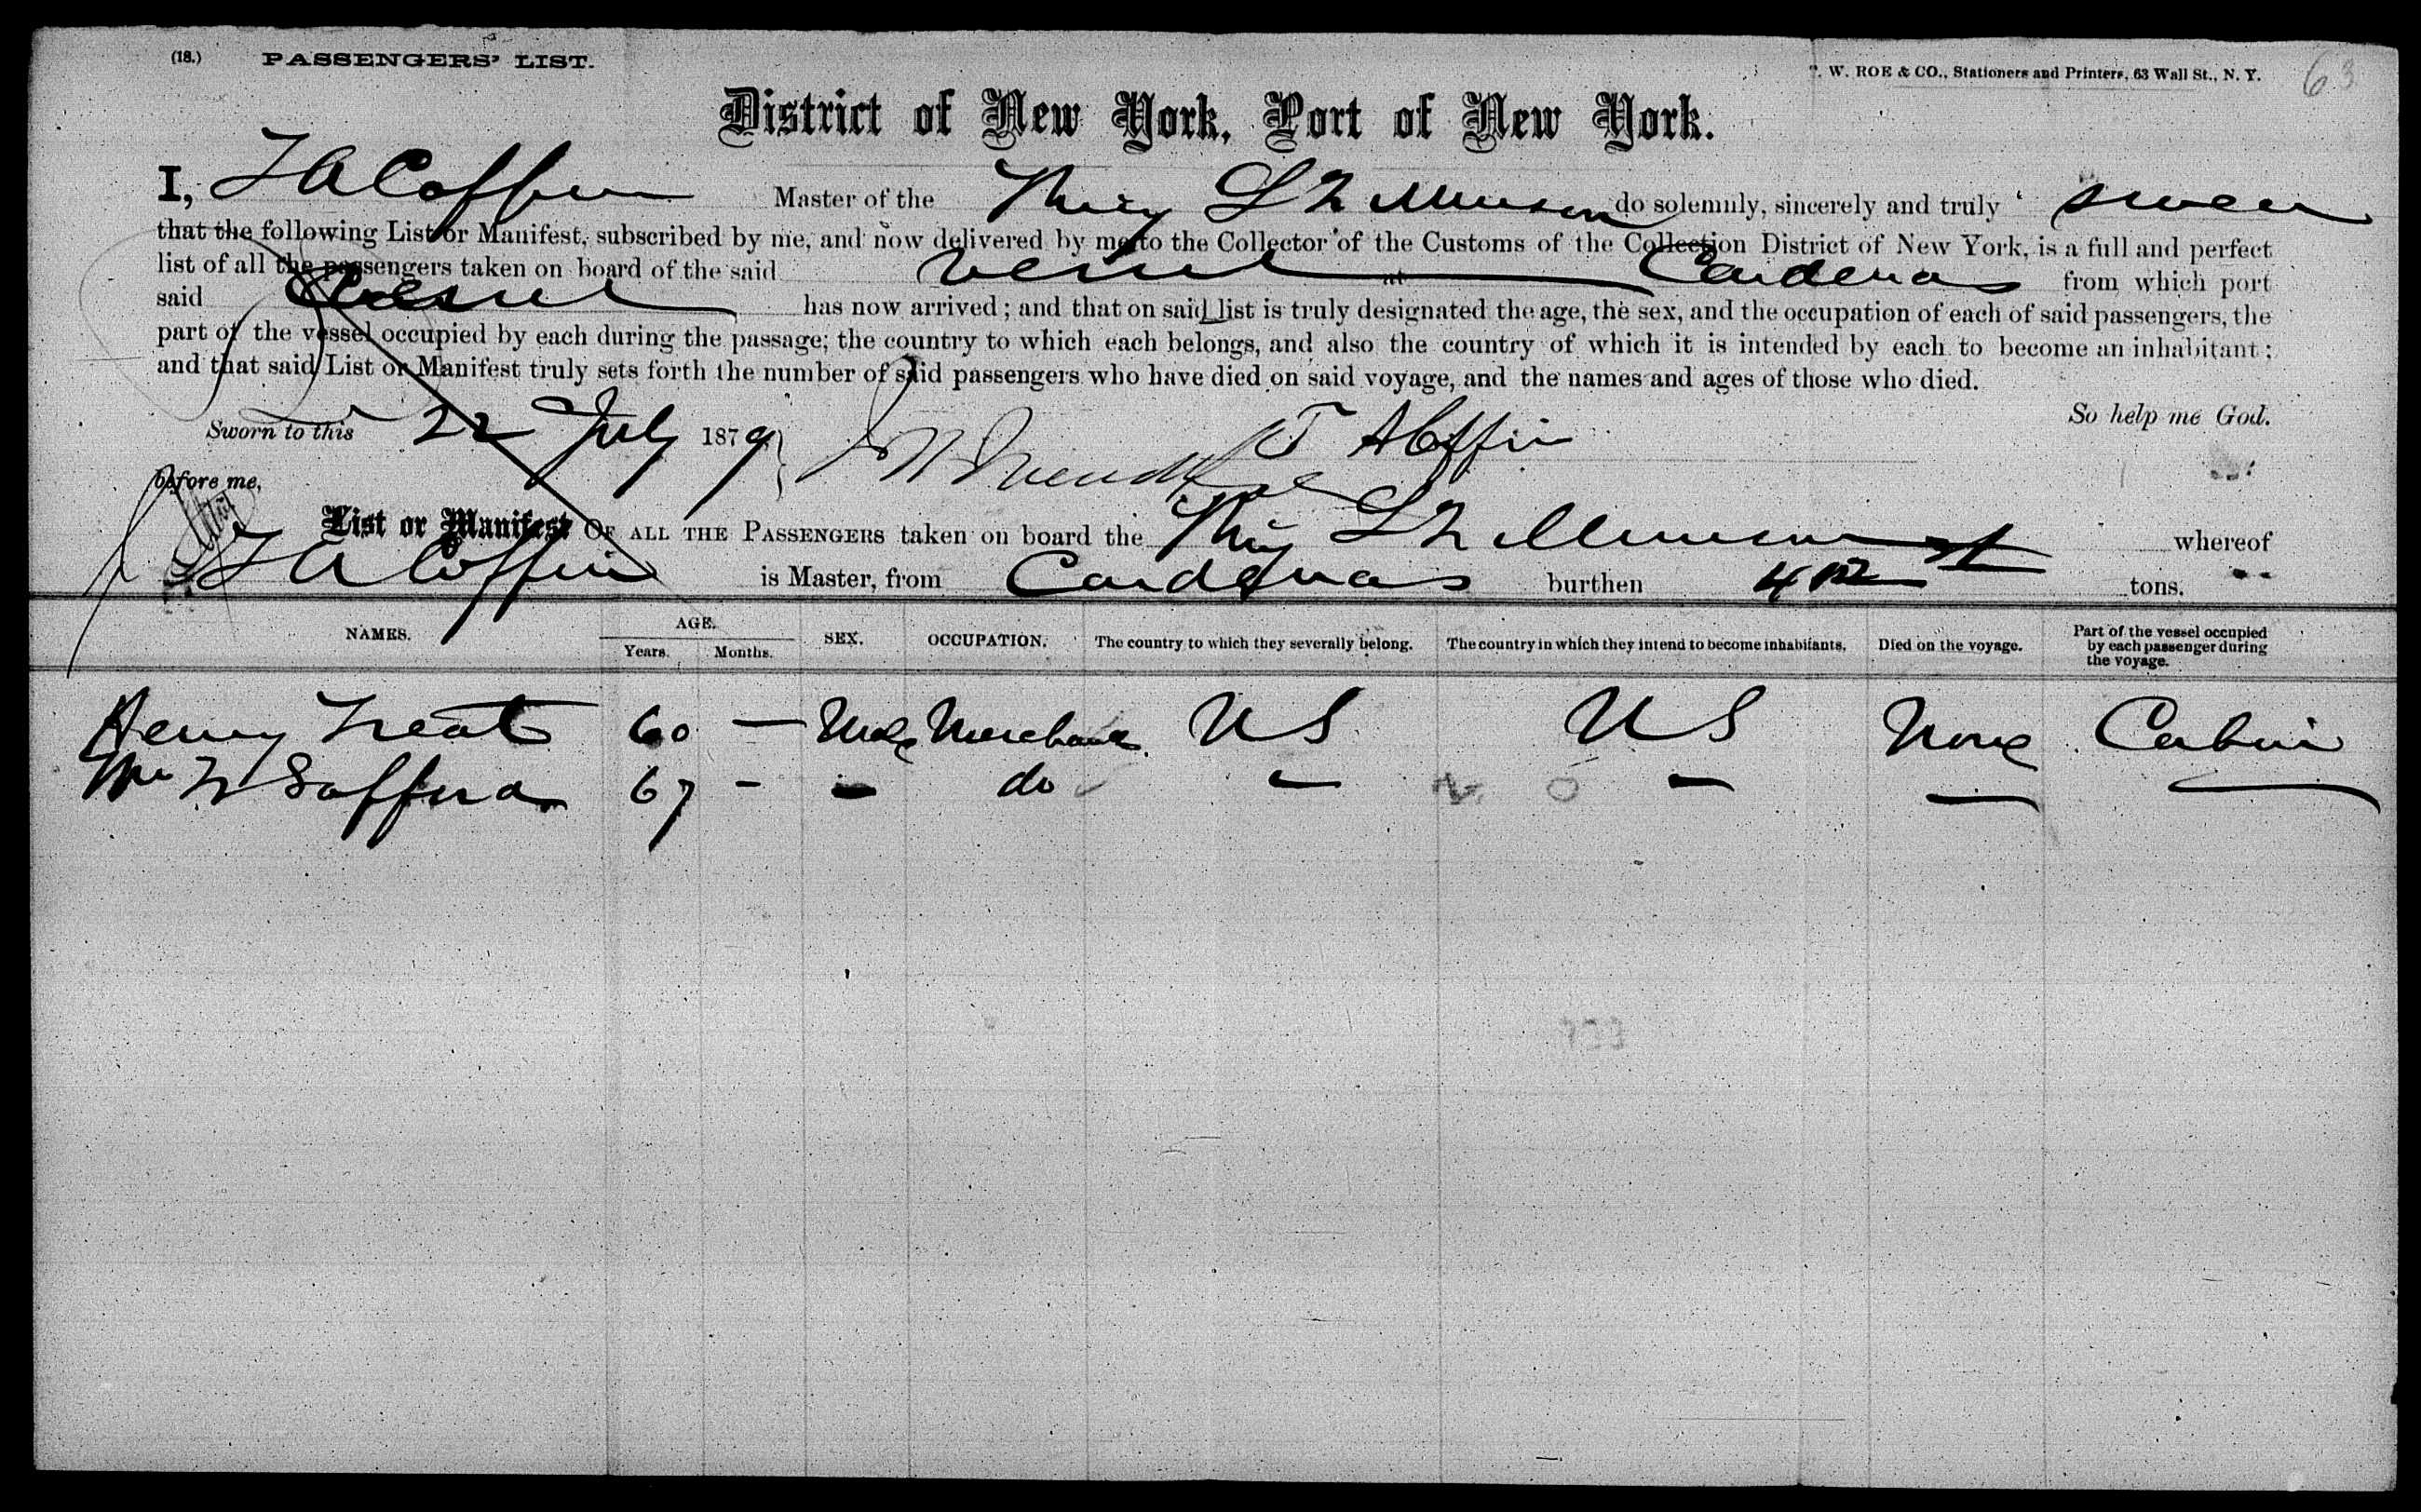 (18.) PASSENGERS' LIST.
. W. ROE & CO., Stationers and Printers, 63 Wall St., N. Y. 63
District of New York, Port of New York.
I, T A Coffin Master of the L Munson do solemnly, sincerely and truly swear
that the following List or Manifest, subscribed by me, and now delivered by me to the Collector of the Customs of the Collection District of New York, is a full and perfect
list of all the passengers taken on board of the said vessel at Cardenas from which port
said vessel has now arrived; and that on said list is truly designated the age, the sex, and the occupation of each of said passengers, the
part of the vessel occupied by each during the passage; the country to which each belongs, and also the country of which it is intended by each to become an inhabitant;
and that said List or Manifest truly sets forth the number of said passengers who have died on said voyage, and the names and ages of those who died.
So help me God.
Sworn to this 22 July 1879 T A Coffin
before me,
List or Manifest OF ALL THE PASSENGERS taken on board the L Munson whereof
T A Coffin is Master, from Cardenas burthen tons.
NAMES. AGE. Years. Months. SEX. OCCUPATION. The country to which they severally belong. The country in which they intend to become inhabitants. Died on the voyage. Part of the vessel occupied by each passenger during the voyage.
Henry Treat 60 — Male Merchant US US None Cabin
Wm Safford 67 - - do — — — —